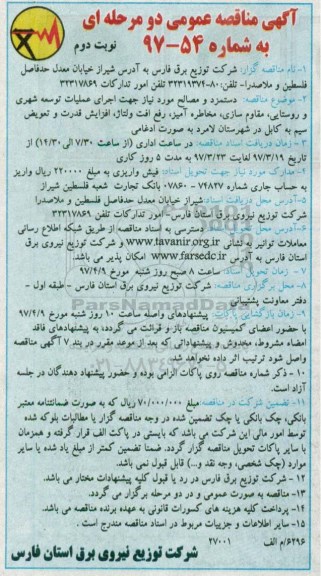 آگهی مناقصه عمومی دو مرحله ای
به شماره ۵۴-۹۷
نوبت دوم
۱- نام مناقصه گزار: شرکت توزیع برق فارس به آدرس شیراز خیابان معدل حدفاصل
فلسطین و ملاصدرا- تلفن: ۸۰-۳۲۳۱۹۳۷۴ تلفن امور تدارکات ۳۲۳۱۷۸۶۹
۲- موضوع مناقصه: دستمزد و مصالح مورد نیاز جهت اجرای عملیات توسعه شهری
و روستایی، مقاوم سازی، مخاطره آمیز، رفع افت ولتاژ، افزایش قدرت و تعویض
سیم به کابل در شهرستان لامرد به صورت ادغامی
۳- زمان دریافت اسناد مناقصه: در ساعت اداری (از ساعت ۷/۳۰ الی ۱۴/۳۰) از
تاریخ ۹۷/۳/۱۹ لغایت ۹۷/۳/۲۳ به مدت ۵ روز کاری
۴- مدارک مورد نیاز جهت تحویل اسناد: فیش واریزی به مبلغ ۲۲۰۰۰۰ ریال واریز
به حساب جاری شماره ۷۴۸۲۷-۰۷۸۶۰ بانک تجارت شعبه فلسطین شیراز
۵- آدرس محل دریافت اسناد: شیراز خیابان معدل حدفاصل فلسطین و ملاصدرا
شرکت توزیع نیروی برق استان فارس- امور تدارکات تلفن ۳۲۳۱۷۸۶۹
۶- آدرس محل دسترسی به اسناد مناقصه از طریق شبکه اطلاع رسانی
معاملات توانیر به نشانی www.tavanir.org.ir و شرکت توزیع نیروی برق
استان فارس به آدرس www.farsedc.ir امکان پذیر می باشد.
۷- زمان تحویل اسناد: ساعت ۸ صبح روز شنبه مورخ ۹۷/۴/۹
۸- محل برگزاری مناقصه: شرکت توزیع نیروی برق استان فارس- طبقه اول -
دفتر معاونت پشتیبانی
۹- زمان بازگشایی پاکات: پیشنهادهای واصله ساعت ۱۰ روز شنبه مورخ ۹۷/۴/۹
با حضور اعضای کمیسیون مناقصه باز و قرائت می گردد، به پیشنهادهای فاقد
امضاء مشروط، مخدوش و پیشنهاداتی که بعد از موعد مقرر در بند ۷ آگهی مناقصه
واصل شود ترتیب اثر داده نخواهد شد.
۱۰- ذکر شماره مناقصه روی پاکات الزامی بوده و حضور پیشنهاد دهندگان در جلسه
آزاد است.
۱۱- تضمین شرکت در مناقصه: مبلغ ۷۰/۰۰۰/۰۰۰ ریال که به صورت ضمانتنامه معتبر
بانکی، چک بانکی یا چک تضمین شده در وجه مناقصه گزار یا مطالبات بلوکه شده
توسط امور مالی این شرکت می باشد که بایستی در پاکت الف قرار گرفته و همزمان
با سایر پاکات تحویل مناقصه گزار گردد. ضمنا تضمین کمتر از مبلغ یاد شده یا سایر
موارد (چک شخصی، وجه نقد و...) قابل قبول نمی باشد.
۱۲- شرکت توزیع برق فارس در رد یا قبول کلیه پیشنهادات مختار می باشد.
۱۳- مناقصه به صورت عمومی و در دو مرحله برگزار می گردد.
۱۴- پرداخت کلیه هزینه های کسورات قانونی به عهده برنده مناقصه می باشد.
۱۵- سایر اطلاعات و جزییات مربوط در اسناد مناقصه مندرج است.
۶۲۹۶/م الف ۲۷۰۰۱
شرکت توزیع نیروی برق استان فارس
ParsNamadData